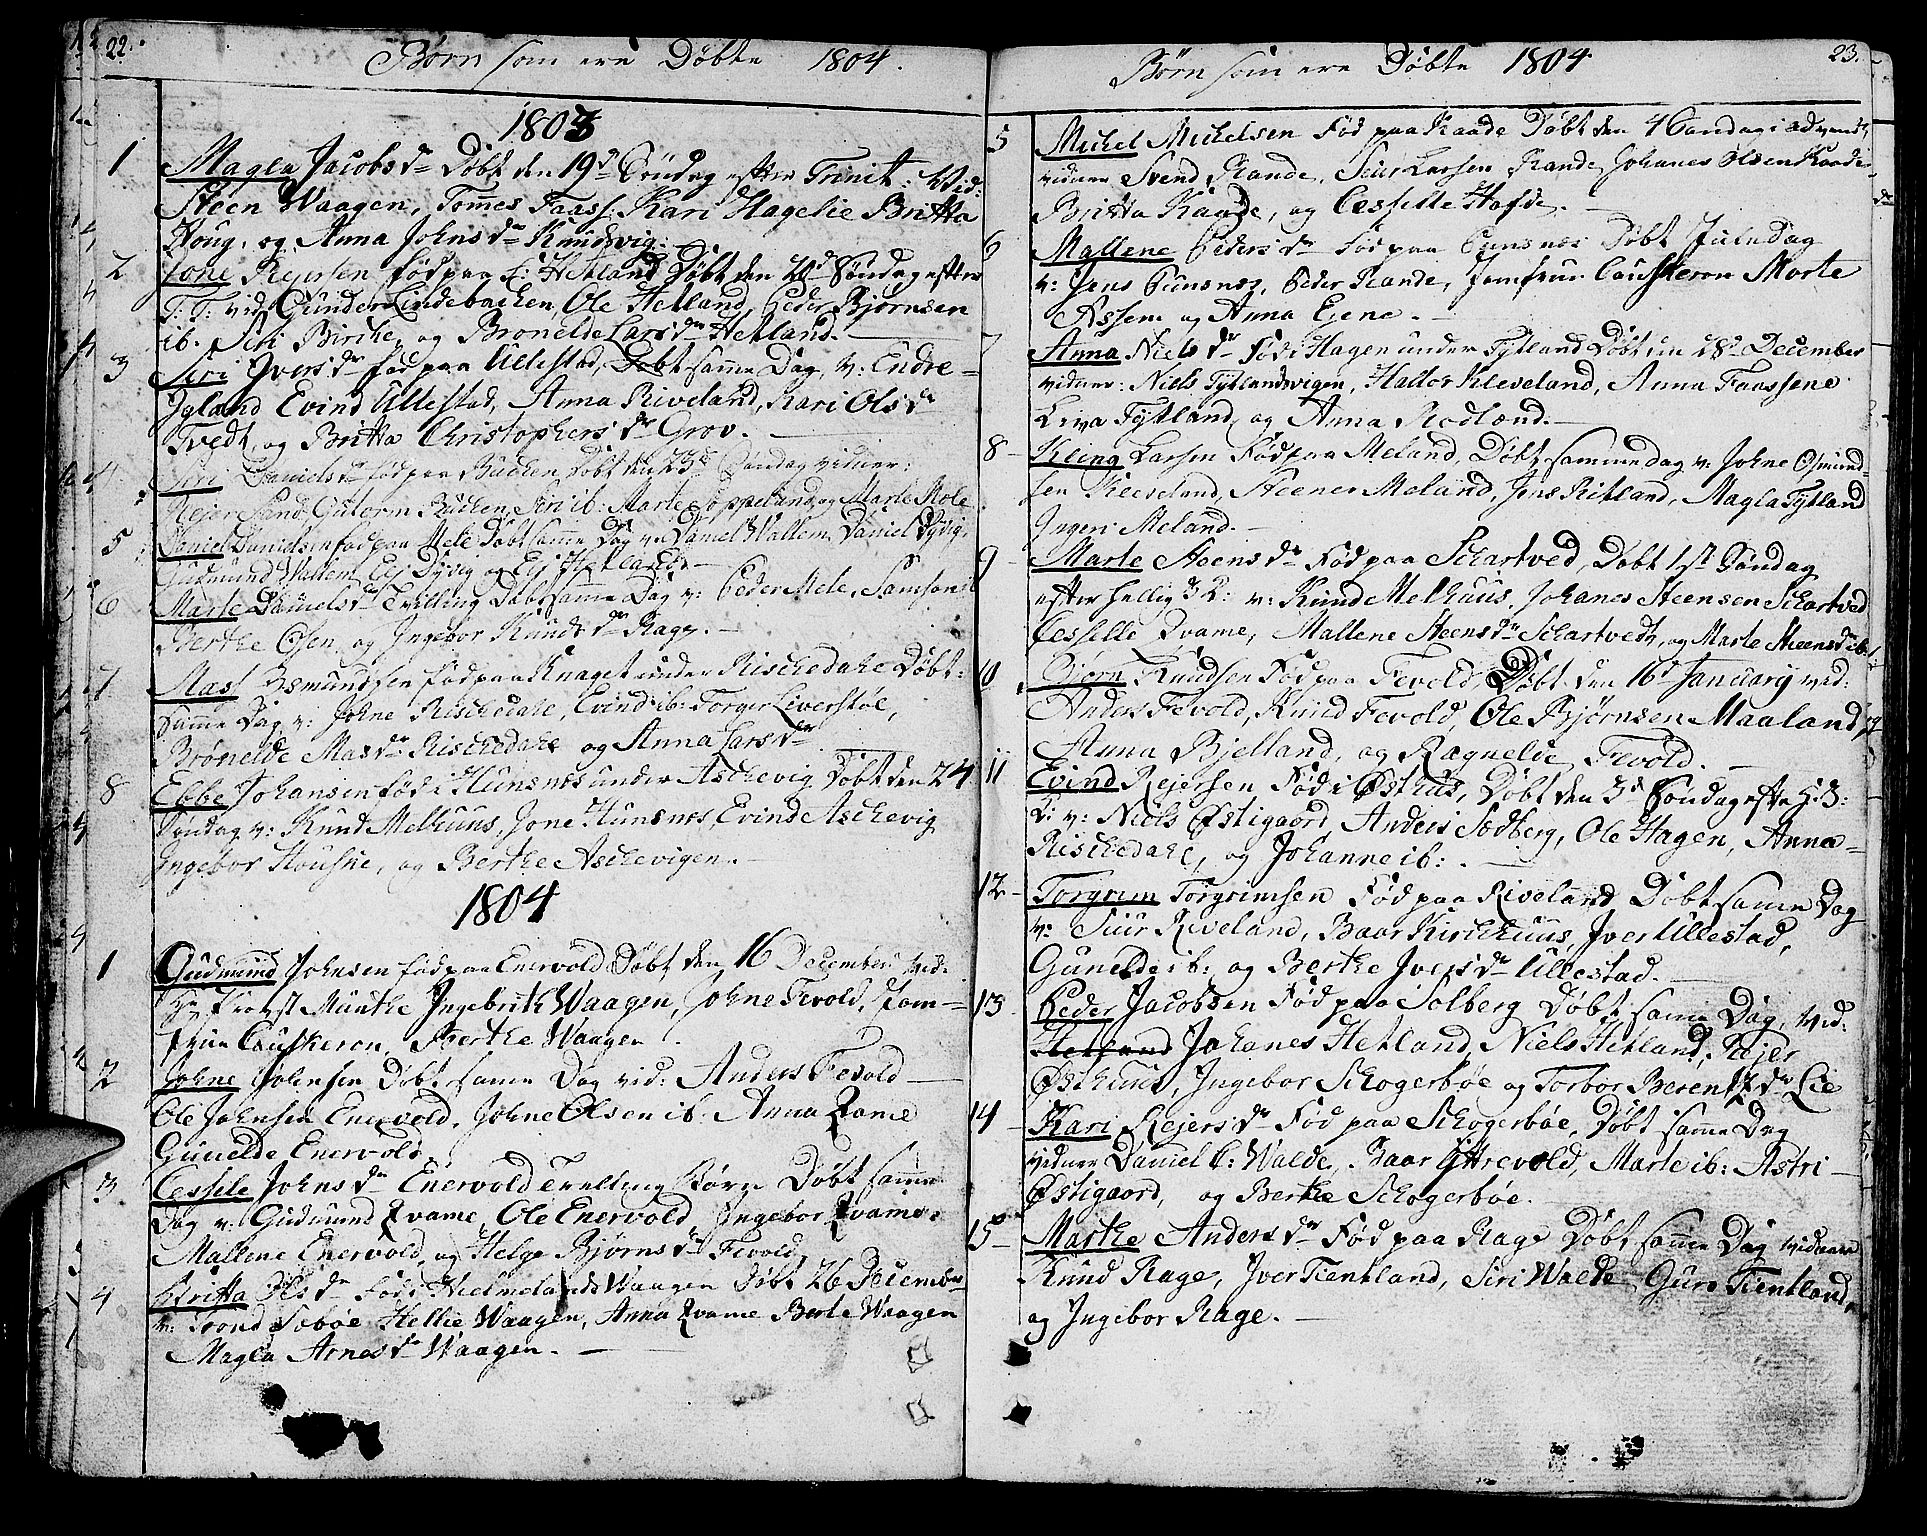 22.
Børn som ere Døbte 1804.
1803
1 Magla Jacobsdr Døbt den 19d Søndag efter Trinit: Vid:
Steen Waagen, Tomes Faass. Kari Hagelie Britta
Houg, og Anna Johnsdr Knudsvig.
2 Jone Rejersen født paa L: Hetland Døbt den 21d Søndag efter
T: T: vid Gunder Lindebacken, Ole Hetland, Peder Bjørnsen
ib. Siri Bircke, og Bronelde Larsdr Hetland.
3 Siri Iversdr født paa Ullestad, Døbt samme Dag, v: Endre
Jgland Evind Ullestad, Anna Riveland, Kari Olsdr
Tvedt, og Britta Christophersdr Grov.
4 Siri Danielsdr født paa Backen Døbt den 23d Søndag vidner:
Rejer Sand, Gutorm Backen, Siri ib: Marte Soppeland og Marte Mele
5 Daniel Danielsen fød paa Mele Døbt samme Dag v: Daniel Wallem Daniel Dyvig,
Gudmund Wallem, Elj Dyvig og Elj Hetland
6 Marte Danielsdr Tvilling Døbt samme Dag v: Peder Mele, Samson ib
Berthe Osen, og Ingebor Knudsdr Rage.
7 Mass Osmundsen fød paa Knaget under Rischedahl Døbt
samme Dag v: Johne Rischedahl, Evind ib: Torger Leverstøe,
Brønelde Masdr Rischedahl og Anna Larsdr
8 Ebbe Johansen fød i Hunsnes under Aschevig Døbt den 24
Søndag v: Knud Melhuus, Jone Hunsnes, Evind Aschevig
Ingebor Houske, og Berthe Aschevigen.
1804
1 Gudmund Johnsen fød paa Enervold Døbt den 16 December vid:
Hr Provst Munthe Ingebrikt Waagen, Johne Fevold, Jom-
frue Causkeron, Berthe Waagen.
2 Johne Johnsen Døbt samme Dag vid: Anders Fevold
Ole Johnsen Enervold, Johne Olsen ib: Anna Qvame
Gunelde Enervold.
3 Cessele Johnsdr Enervold Tvelling Børn Døbt samme
Dag v: Gudmund Qvame, Ole Enervold, Ingebor Qvame,
Mallene Enervold, og Helge Bjørnsdr Fevold
4 Britta Olsdr Fød i Hielmelands Waagen Døbt 26 December
v: Trond Sobøe Hellie Waagen, Anna Qvame Berte Waagen
Magla Arnesdr Waagen.
23.
Børn som ere Døbte 1804
5 Michel Michelsen Fød paa Raade Døbt den 4 Søndag i Advent,
vidner Svend Rande, Siur Larsen Rande, Johanes Olsen Raade
Britta Raade, og Cesselle Hofde.
6 Mallene Pedersdr Fød paa Punsnes Døbt Juledag
v: Jens Punsnes, Peder Rande, Jomfrue Causkeron Morte
Assem og Anna Ejene.
7 Anna Nielsdr Fød i Hagen under Tytland Døbt den 28d December
vidner: Niels Tytlandsvigen, Haltor Kleveland, Anna Faassene
Liva Tytland, og Anna Rodland.
8 Kleing Larsen Fød paa Meland, Døbt samme dag v: Johne Osmund-
sen Kleveland, Steener Meland, Jens Ritland, Magla Tytland
Ingeri Meland.
9 Marte Steensdr Fød paa Schartved, Døbt 1st Søndag
efter hellig 3 K: v: Knud Melhuus, Johanes Steensen Schartved
Cesselle Qvame, Mallene Steensdr Schartvedt, og Marte Steensdr ib:
10 Bjørn Knudsen Fød paa Fevold, Døbt den 16d January vid:
Anders Fevold, Knud Fevold, Ole Bjørnsen Maaland,
Anna Bjelland, og Ragnelde Fevold.
11 Evind Rejersen Fød i Østhus, Døbt den 3d Søndag efter h: 3:
K: v: Niels Østigaard, Anders Sodberg, Ole Hagen, Anna
Rischedahl, og Johanne ib:
12 Torgrim Torgrimsen Fød paa Riveland Døbt samme Dag
v: Siur Riveland, Baar Kirchhuus, Jver Ullestad,
Gunelde ib: og Berthe Jversdr Ullestad.
13 Peder Jacobsen Fød paa Solberg Døbt samme Dag, vid:
Hetland Johanes Hetland, Niels Hetland, Rejer
Østhuus, Ingebor Schogerbøe og Torbor Berentsdr Lie
14 Kari Rejersdr Fød paa Schogerbøe, Døbt samme Dag
vidner Daniel L: Walde, Baar Yttrevold, Marte ib: Astri
Østigaard, og Berthe Schogerbøe.
15 Marthe Andersdr Fød paa Rage Døbt samme Dag vidnere
Knud Rage, Jver Tientland, Siri Walde Guro Tientland,
og Ingebor Rage.